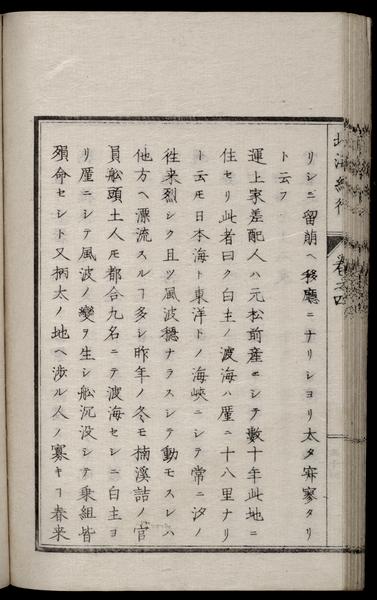 リシニ留萌ヘ移廳ニナリシヨリ太タ寂寥タリ
ト云フ
運上家差配人ハ元松前産ニシテ數十年此地ニ
住セリ此者曰ク白主ノ渡海ハ厪ニ十八里ナリ
ト云モ日本海ト東洋トノ海峽ニシテ常ニ汐ノ
徃来烈シク且ツ風波穏ナラスシテ動モスレハ
他方ヘ漂流スルヿ多シ昨年ノ冬モ楠溪詰ノ官
員舩頭土人モ都合九名ニテ渡海セシニ白主ヨ
リ厪ニシテ風波ノ變ヲ生シ舩沉没シテ乗組皆
殞命セシト又柄太ノ地ヘ渉ル人ノ寡キヿ春来
北海紀行
巻之四